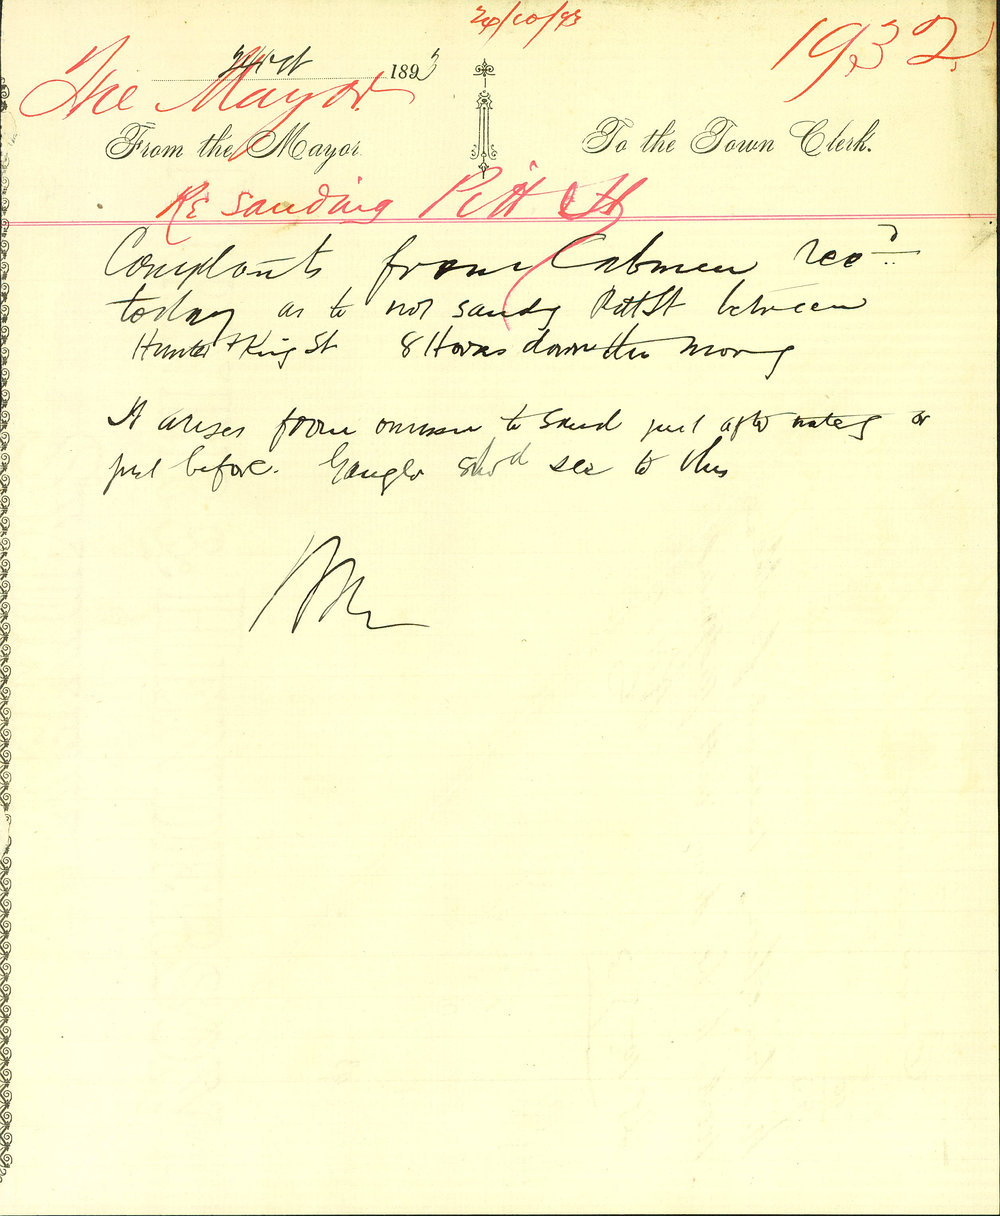 24/10/93
1932
The Mayor
24 Oct 1893
From the Mayor To the Town Clerk.
Re Sanding Pitt St
Complaints from Cabmen recd
today as to not sandg Pitt St between
Hunter & King St 8 Horses down this morng
It arises from omission to Sand just after waterg or
just before. Ganger shod see to this